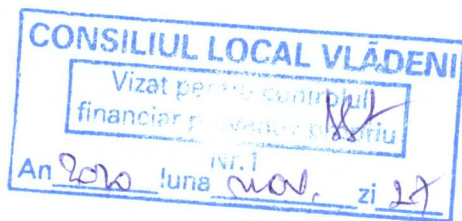 CONSILIUL LOCAL VLĂDENI
Vizat pentru controlul
financiar preventiv propriu
Nr. 1
An 2020 luna nov. zi 27